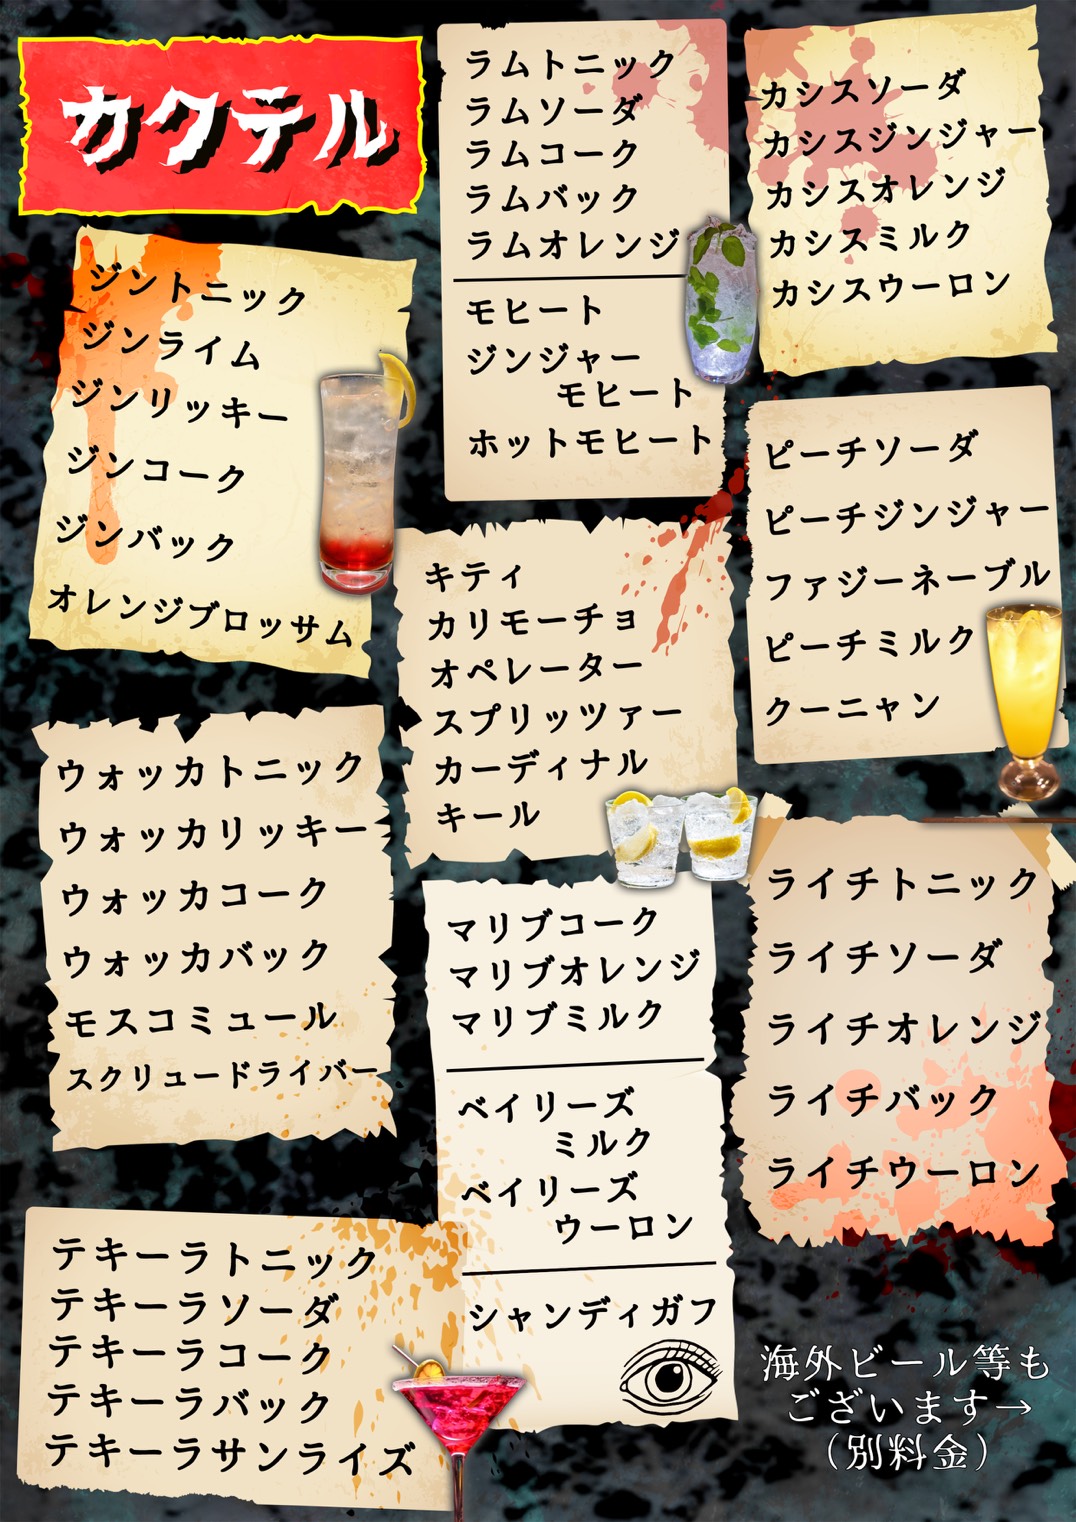 カクテル
ジントニック
ジンライム
ジンリッキー
ジンコーク
ジンバック
オレンジブロッサム
ウォッカトニック
ウォッカリッキー
ウォッカコーク
ウォッカバック
モスコミュール
スクリュードライバー
テキーラトニック
テキーラソーダ
テキーラコーク
テキーラバック
テキーラサンライズ
ラムトニック
ラムソーダ
ラムコーク
ラムバック
ラムオレンジ
モヒート
ジンジャー
モヒート
ホットモヒート
キティ
カリモーチョ
オペレーター
スプリッツァー
カーディナル
キール
マリブコーク
マリブオレンジ
マリブミルク
ベイリーズ
ミルク
ベイリーズ
ウーロン
シャンディガフ
カシスソーダ
カシスジンジャー
カシスオレンジ
カシスミルク
カシスウーロン
ピーチソーダ
ピーチジンジャー
ファジーネーブル
ピーチミルク
クーニャン
ライチトニック
ライチソーダ
ライチオレンジ
ライチバック
ライチウーロン
海外ビール等も
ございます→
（別料金）